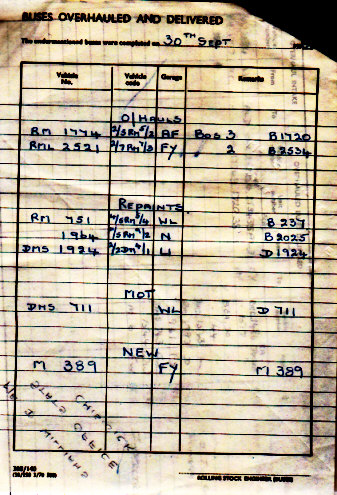 BUSES OVERHAULED AND DELIVERED
The undermentioned buses were completed on 30TH SEPT
Vehicle No. Vehicle code Garage Remarks
O/HAULS
RM 1774 2/5RM5/2 AF BOS 3 B1720
RML 2521 2/7RM7/3 FY 2 B2534
REPAINTS
RM 751 WL B237
1964 N B2025
DMS 1924 LI D1924
MOT
DMS 711 WL D711
NEW
M 389 FY M389
CHISWICK
STATS OFFICE
ROLLING STOCK ENGINEER (BUSES)